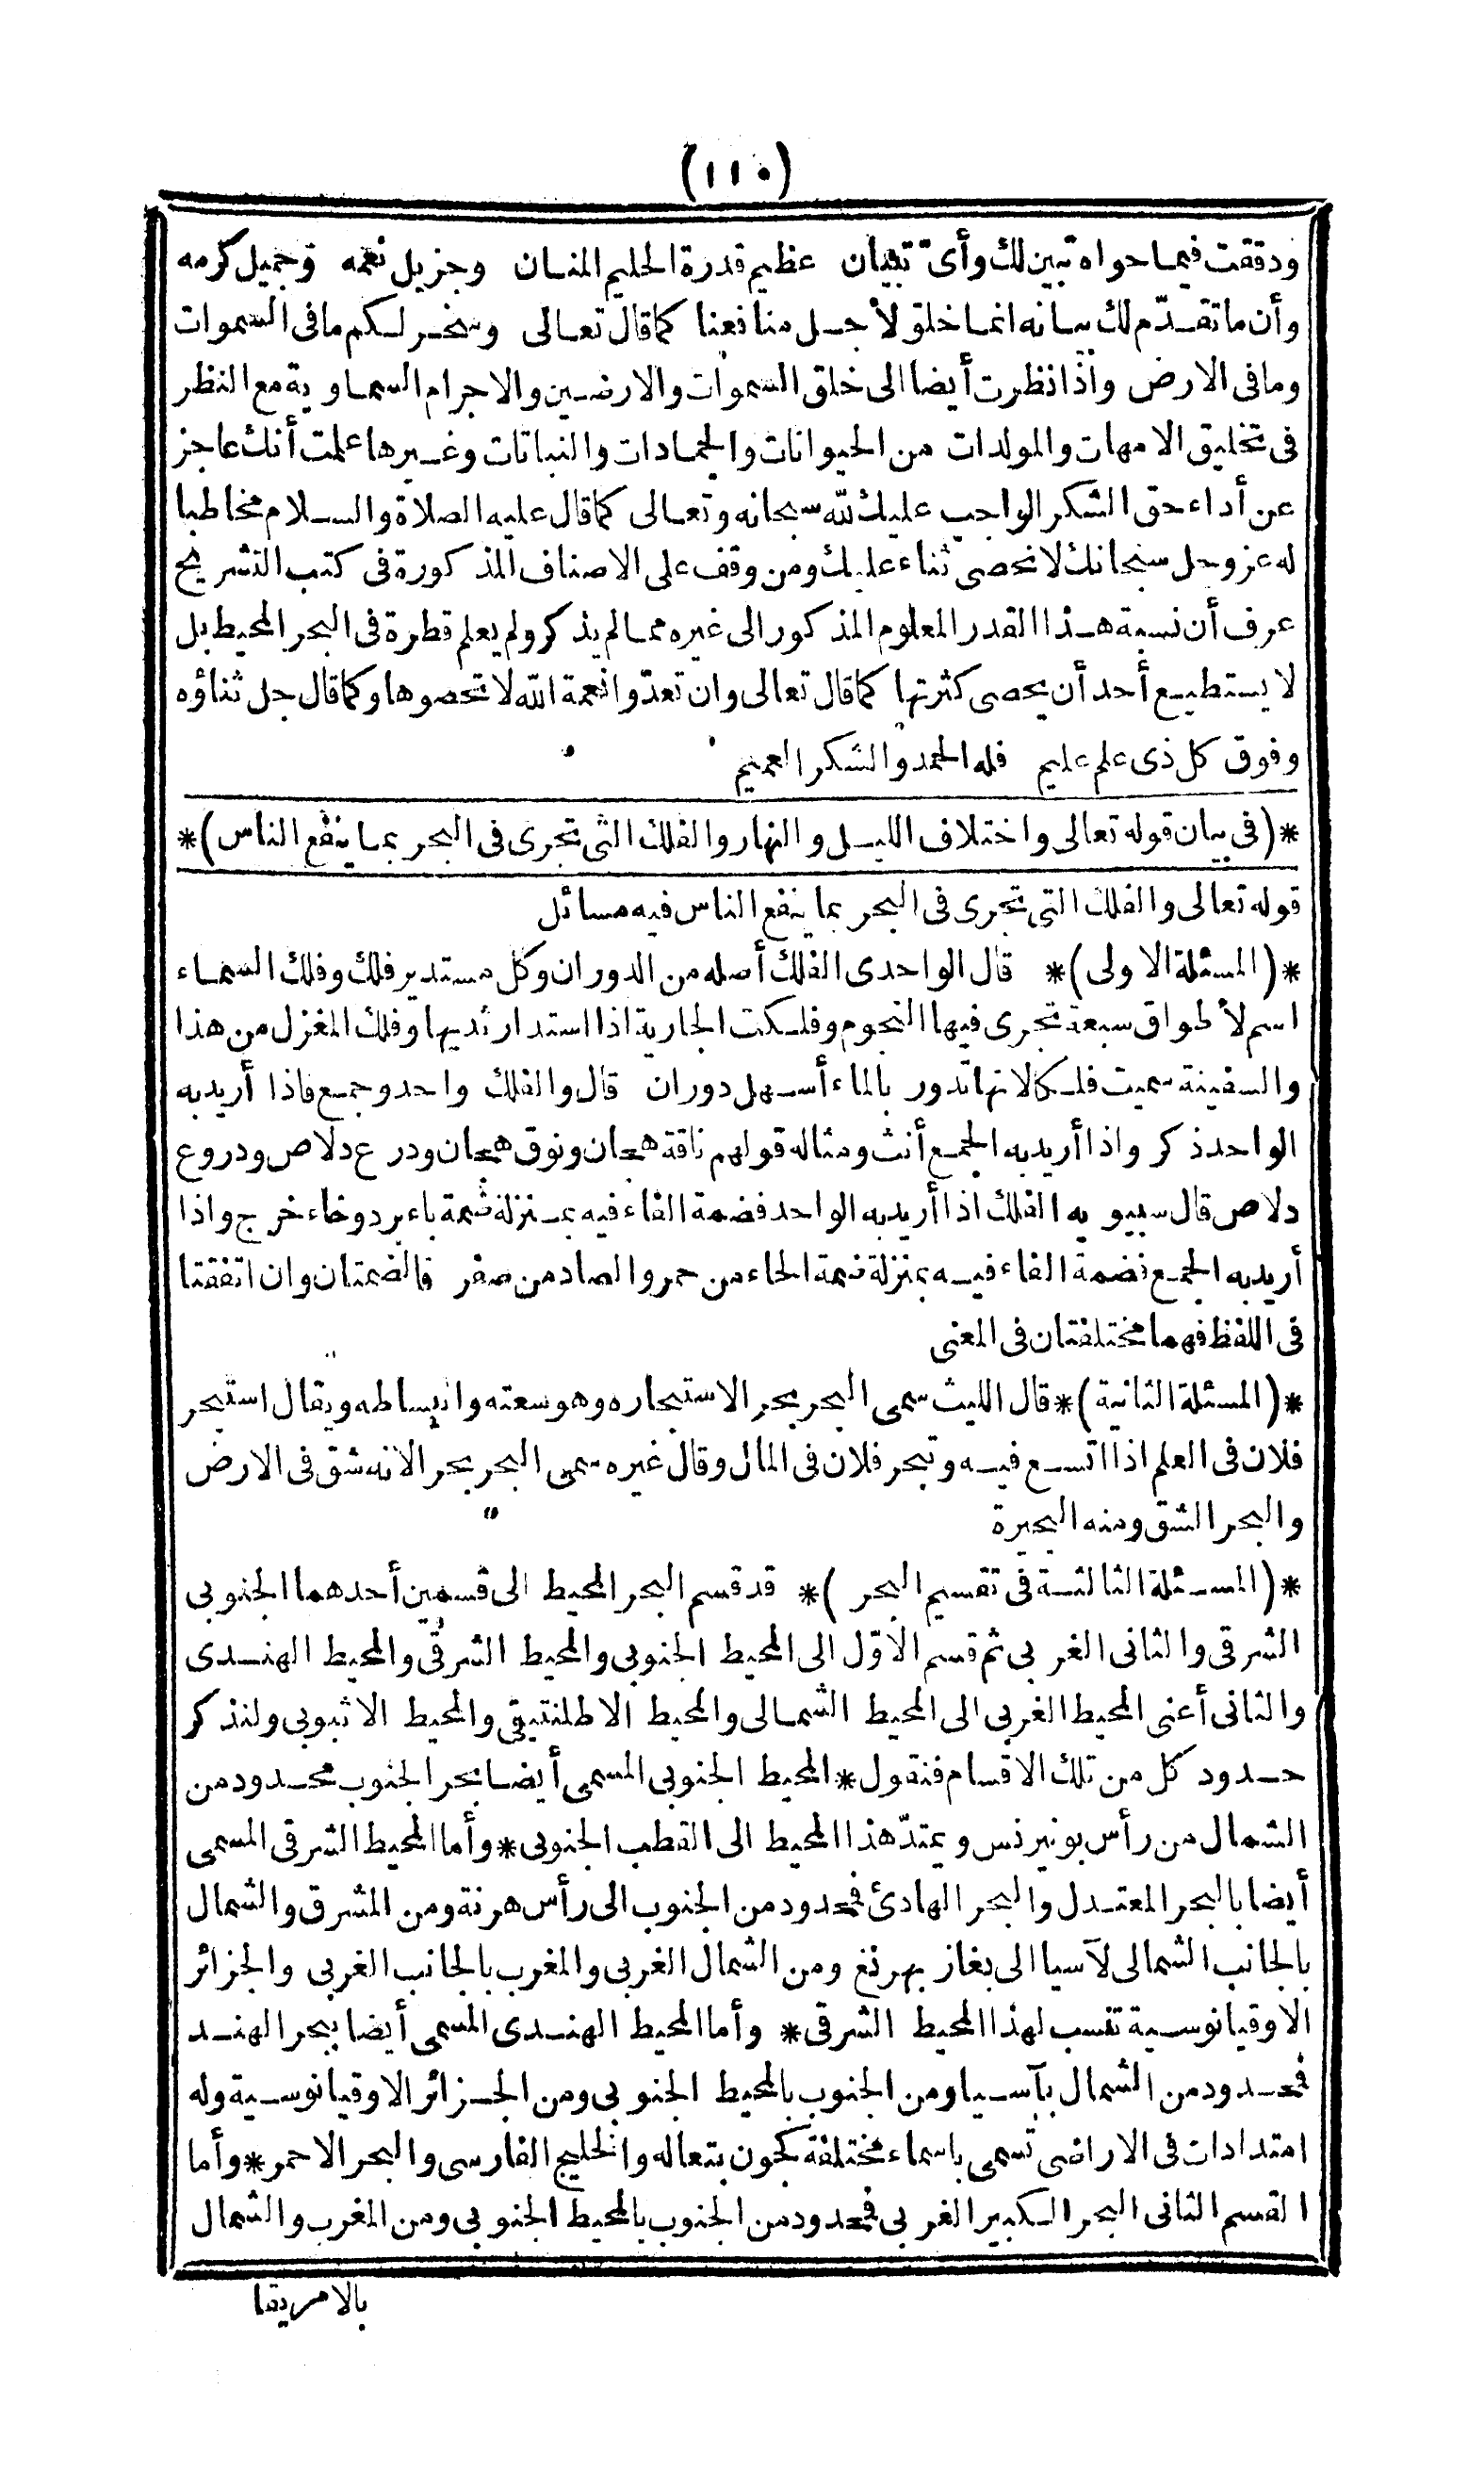 (١١٠)
ودققت فيما حواه تبين لك وأى تبيان عظيم قدرة الحليم المنان وجزيل نعمه وجميل كرمه
وأن ما تقدّم لك بيانه انما خلق لأجل منافعنا كما قال تعالى وسخر لكم ما فى السموات
وما فى الارض واذا نظرت أيضا الى خلق السموات والارضين والاجرام السماوية مع النظر
فى تخليق الامهات والمولدات من الحيوانات والجمادات والنباتات وغيرها علمت أنك عاجز
عن أداء حق الشكر الواجب عليك لله سبحانه وتعالى كما قال عليه الصلاة والسلام مخاطبا
له عز وجل سبحانك لا نحصى ثناء عليك ومن وقف على الاصناف المذكورة فى كتب التشريح
عرف أن نسبة هذا القدر المعلوم المذكور الى غيره مما لم يذكر ولم يعلم قطرة فى البحر المحيط بل
لا يستطيع أحد أن يحصى كثرتها كما قال تعالى وان تعدّوا نعمة الله لا تحصوها وكما قال جل ثناؤه
وفوق كل ذى علم عليم فله الحمد والشكر العميم
*(فى بيان قوله تعالى واختلاف الليل والنهار والفلك التى تجرى فى البحر بما ينفع الناس)*
قوله تعالى والفلك التى تجرى فى البحر بما ينفع الناس فيه مسائل
*(المسئلة الاولى)* قال الواحدى الفلك أصله من الدوران وكل مستدير فلك وفلك السماء
اسم لأطواق سبعة تجرى فيها النجوم وفلكت الجارية اذا استدار ثديها وفلك المغزل من هذا
والسفينة سميت فلكا لانها تدور بالماء أسهل دوران قال والفلك واحد وجمع فاذا أريد به
الواحد ذكر واذا أريد به الجمع أنث ومثاله قولهم ناقة هجان ونوق هجان ودرع دلاص ودروع
دلاص قال سيبويه الفلك اذا أريد به الواحد فضمة الفاء فيه بمنزلة ضمة باء برد وخاء خرج واذا
أريد به الجمع فضمة الفاء فيه بمنزلة ضمة الحاء من حمر والصاد من صفر فالضمتان وان اتفقتا
فى اللفظ فهما مختلفتان فى المعنى
*(المسئلة الثانية)* قال الليث سمى البحر بحر الاستبحاره وهو سعته وانبساطه ويقال استبحر
فلان فى العلم اذا اتسع فيه وتبحر فلان فى المال وقال غيره سمى البحر بحر الانه شق فى الارض
والبحر الشق ومنه البحيرة
*(المسئلة الثالثة فى تقسيم البحر)* قد قسم البحر المحيط الى قسمين أحدهما الجنوبى
الشرقى والثانى الغربى ثم قسم الاوّل الى المحيط الجنوبى والمحيط الشرقى والمحيط الهندى
والثانى أعنى المحيط الغربى الى المحيط الشمالى والمحيط الاطلنتيقى والمحيط الاثيوبى ولنذكر
حدود كل من تلك الاقسام فنقول * المحيط الجنوبى المسمى أيضا بحر الجنوب محدود من
الشمال من رأس بونيرنس ويمتدّ هذا المحيط الى القطب الجنوبى * وأما المحيط الشرقى المسمى
أيضا بالبحر المعتدل والبحر الهادئ فمحدود من الجنوب الى رأس هرنة ومن المشرق والشمال
بالجانب الشمالى لآسيا الى بغاز بهرنغ ومن الشمال الغربى والمغرب بالجانب الغربى والجزائر
الاوقيانوسية تنسب لهذا المحيط الشرقى * وأما المحيط الهندى المسمى أيضا ببحر الهند
فمحدود من الشمال بآسيا ومن الجنوب بالمحيط الجنوبى ومن الجزائر الاوقيانوسية وله
امتدادات فى الاراضى تسمى باسماء مختلفة كجون بتعاله والخليج الفارسى والبحر الاحمر * وأما
القسم الثانى البحر الكبير الغربى فمحدود من الجنوب بالمحيط الجنوبى ومن المغرب والشمال
بالامريقا